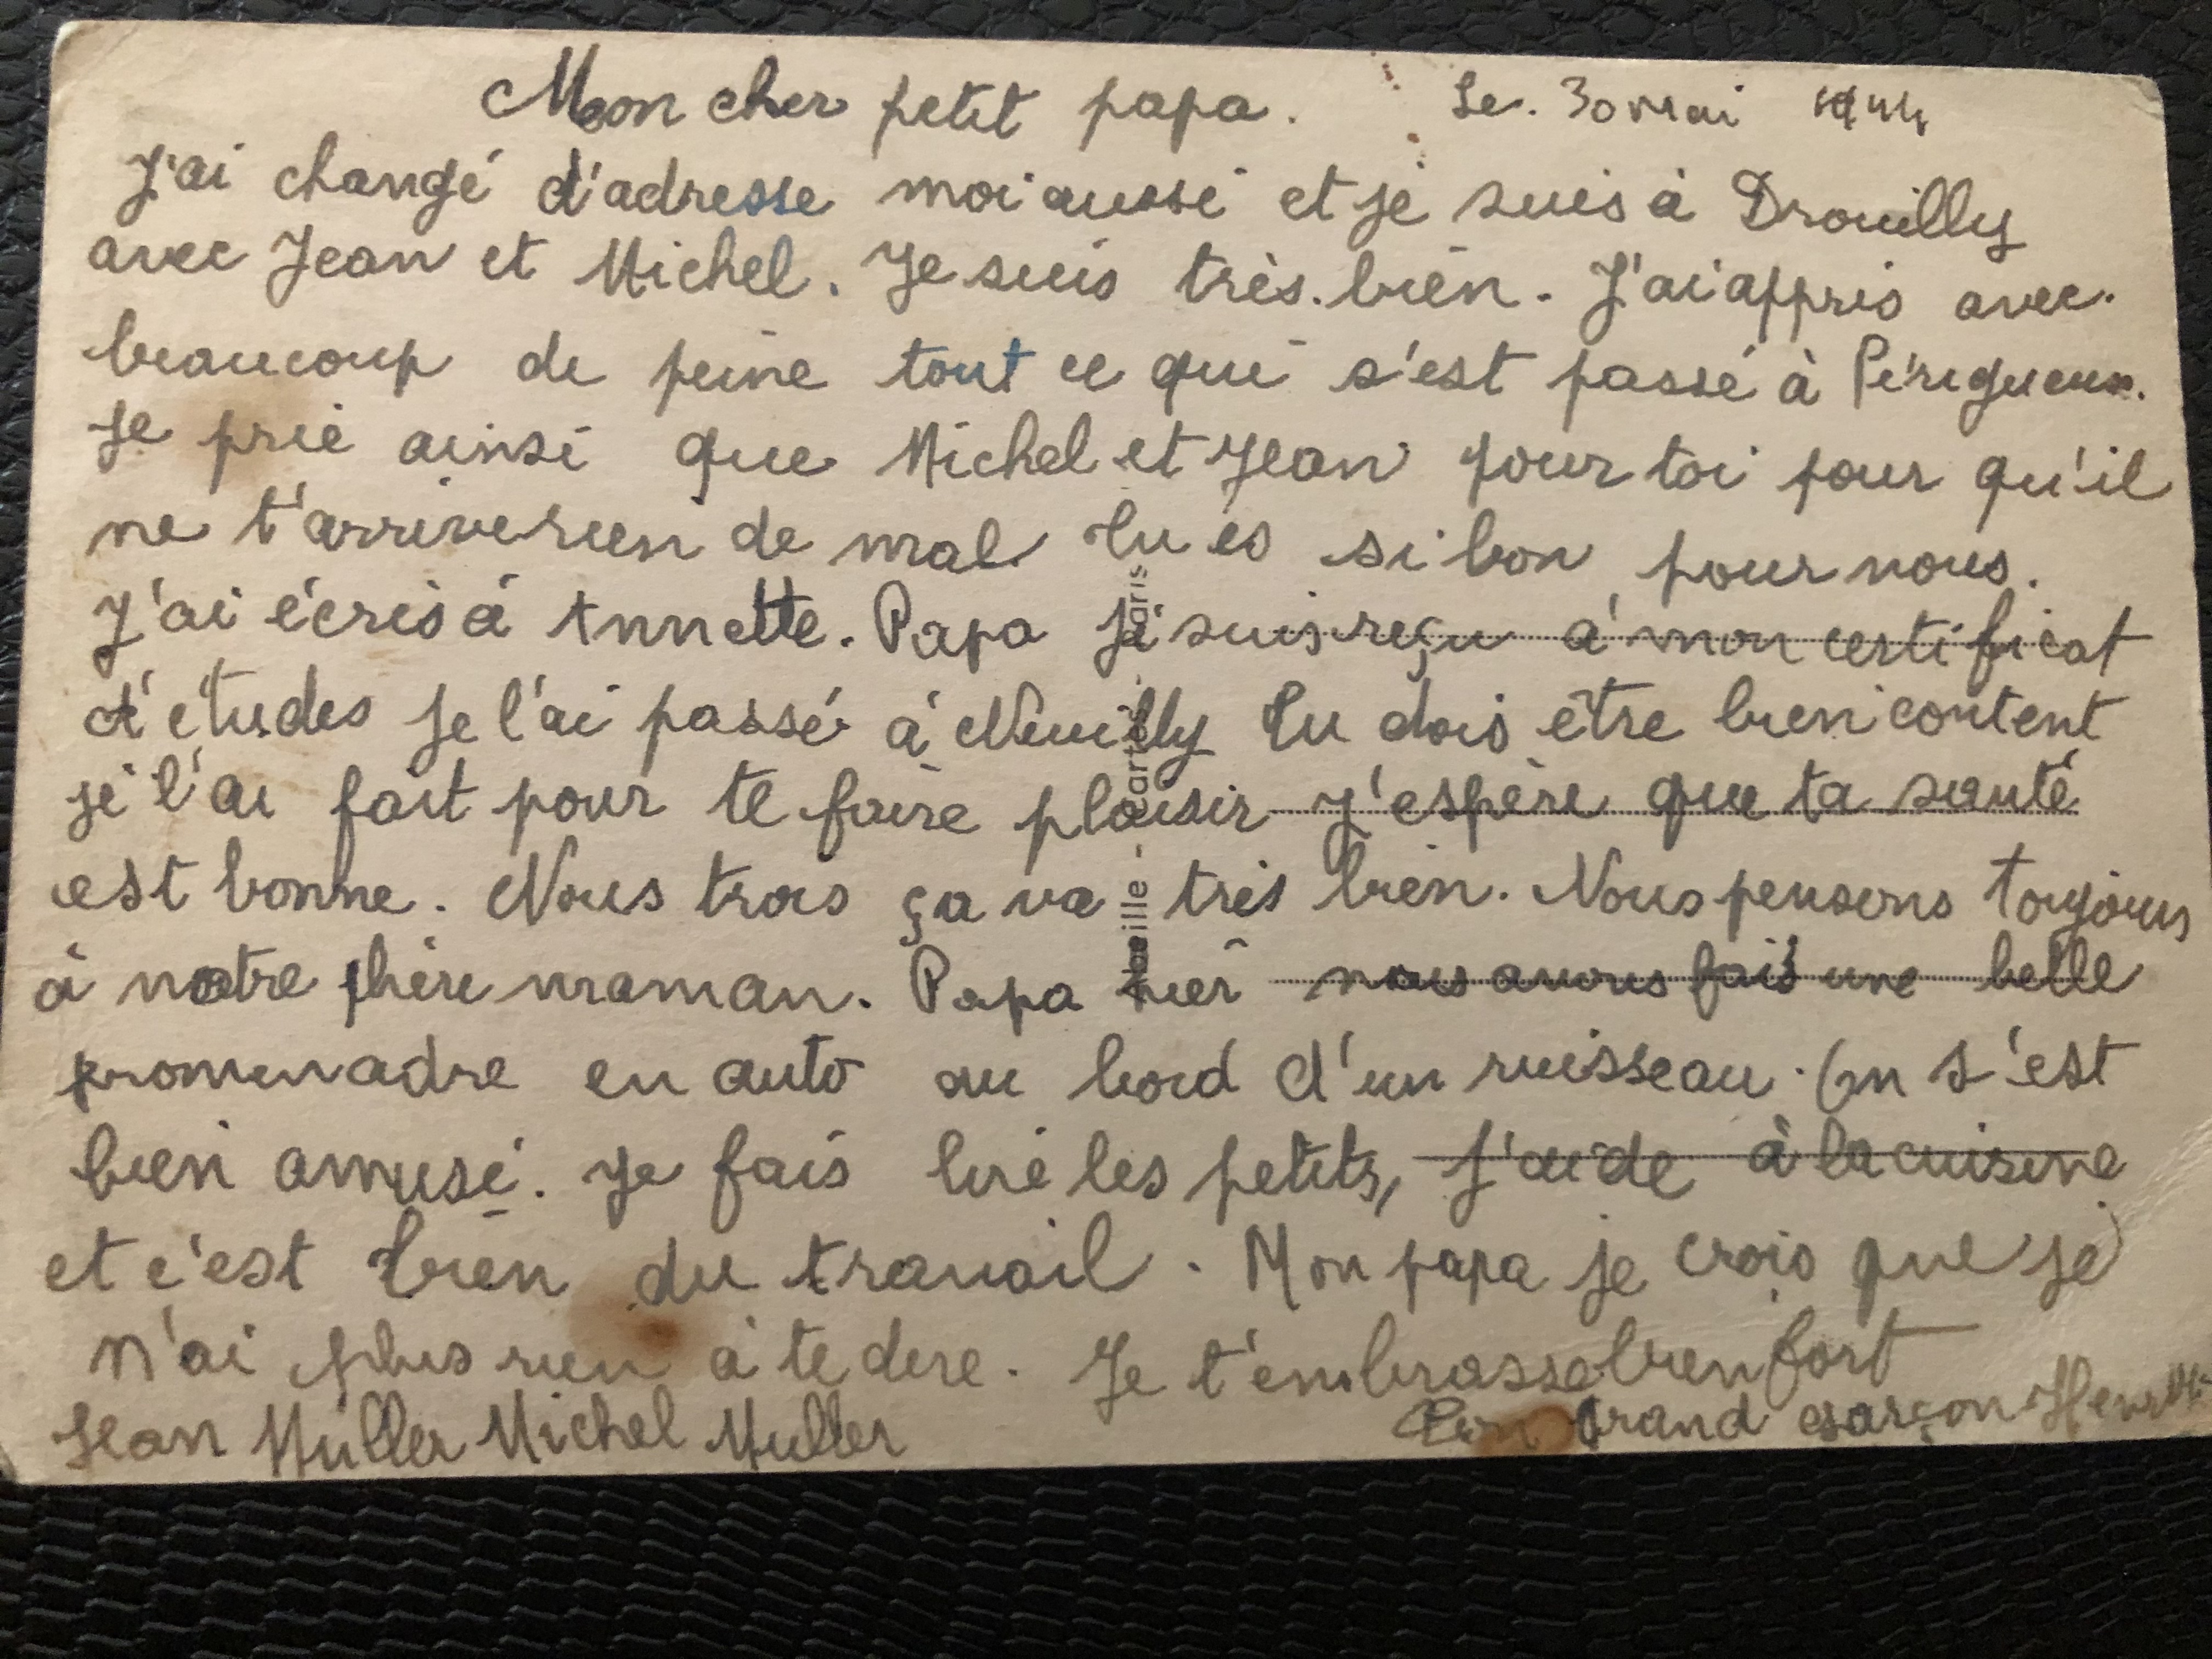 Mon cher petit papa. Le. 30 mai 1944
J'ai changé d'adresse moi aussi et je suis à Drouilly
avec Jean et Michel. Je suis très. bien. J'ai appris avec.
beaucoup de peine tout ce qui s'est passé à Périgueux.
Je prie ainsi que Michel et Jean pour toi pour qu'il
ne t'arrive rien de mal Tu es si bon pour nous.
J'ai écris à Annette. Papa je suis reçu à mon certificat
d'études je l'ai passé à Neuilly Tu dois être bien content
je l'ai fait pour te faire plaisir J'espère que ta santé
est bonne. Nous trois ça va très bien. Nous pensons toujours
à notre chère maman. Papa hier nous avons fais une belle
promenadre en auto au bord d'un ruisseau. On s'est
bien amusé. Je fais lire les petits, j'aide à la cuisine
et c'est bien du travail. Mon papa je crois que je
n'ai plus rien à te dire. Je t'embrasse bien fort
Jean Müller Michel Muller Ton grand garçon